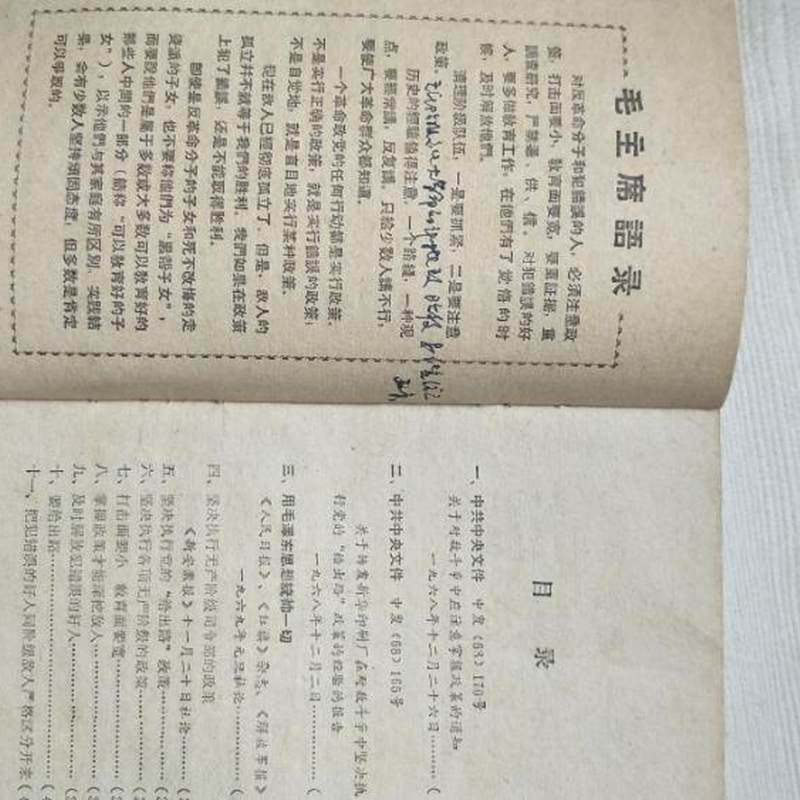 毛主席語录
对反革命分子和犯錯誤的人，必须注意政
策，打击面要小，敎育面要宽，要重証据，重
調查研究，严禁逼、供、信。对犯錯誤的好
人，要多做敎育工作，在他們有了觉悟的时
候，及时解放他們。
清理阶级队伍，一是要抓紧，二是要注意
政策。
历史的經驗值得注意。一个路綫，一种观
点，要經常講，反复講。只給少数人講不行，
要使广大革命群众都知道。
一个革命政党的任何行动都是实行政策。
不是实行正确的政策，就是实行錯誤的政策；
不是自觉地，就是盲目地实行某种政策。
现在敌人已經彻底孤立了。但是，敌人的
孤立并不就等于我們的胜利。我們如果在政策
上犯了錯誤，还是不能取得胜利。
卽使是反革命分子的子女和死不改悔的走
資派的子女，也不要称他們为“黑帮子女”，
而要說他們是属于多数或大多数可以敎育好的
那些人中間的一部分（簡称“可以敎育好的子
女”），以示他們与其家庭有所区别。实践結
果，会有少数人坚持頑固态度，但多数是肯定
可以爭取的。
目录
一、中共中央文件 中发（68）170号
关于对敌斗爭中应注意掌握政策的通知
一九六八年十二月二十六日………（
二、中共中央文件 中发（68）165号
关于轉发新华印刷厂在对敌斗爭中坚决执
行党的“給出路”政策的經驗的报告
一九六八年十二月二日………（
三、用毛澤东思想統帅一切
《人民日报》、《紅旗》杂志、《解放軍报》
一九六九年元旦社論………（
四、坚决执行无产阶级司令部的政策
《新安徽报》十一月二十日社論………（
五、坚决执行党的“給出路”政策………（
六、坚决执行各项无产阶级的政策………（
七、打击面要小，敎育面要宽………（
八、掌握政策才能深挖敌人………（
九、及时解放犯錯誤的好人………（
十、要給出路………（
十一、把犯錯誤的好人同阶级敌人严格区分开来（